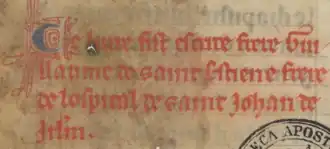 Ce livre fist escrire frere Gui
llaume de saint Estiene frere
de lospital de saint Johan de
Jrlm.
ECA APOST